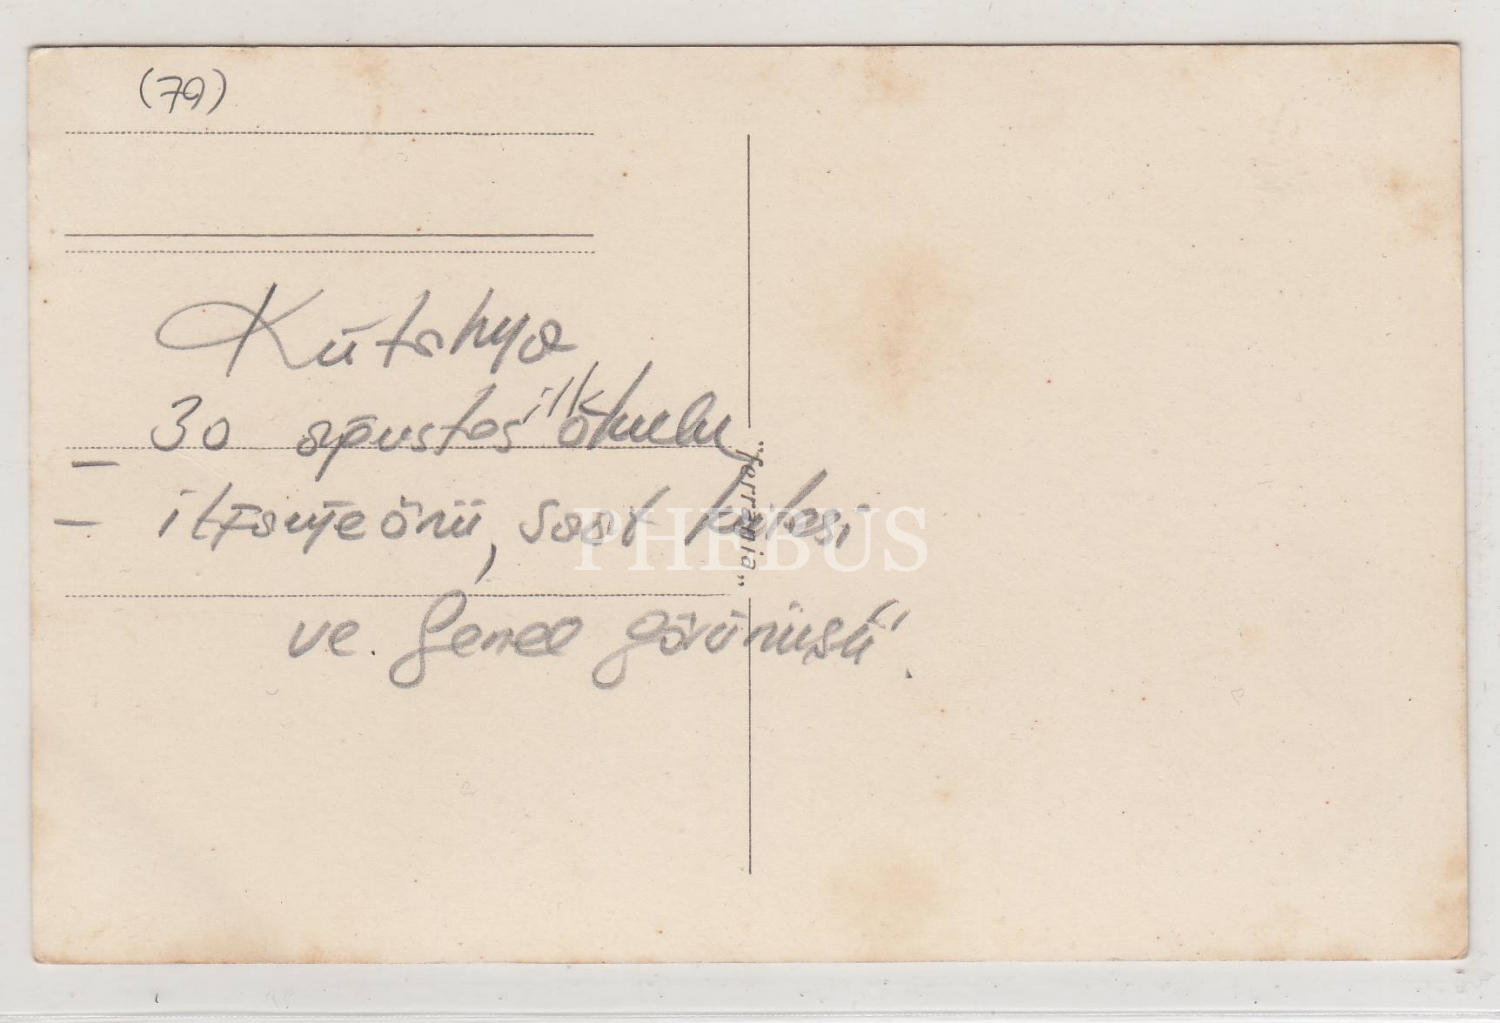 (79)
Kütahya
30 ağustos ilk okulu
– itfaiye önü, saat kulesi
ve genel görünüşü.
"ferrania"
PHEBUS